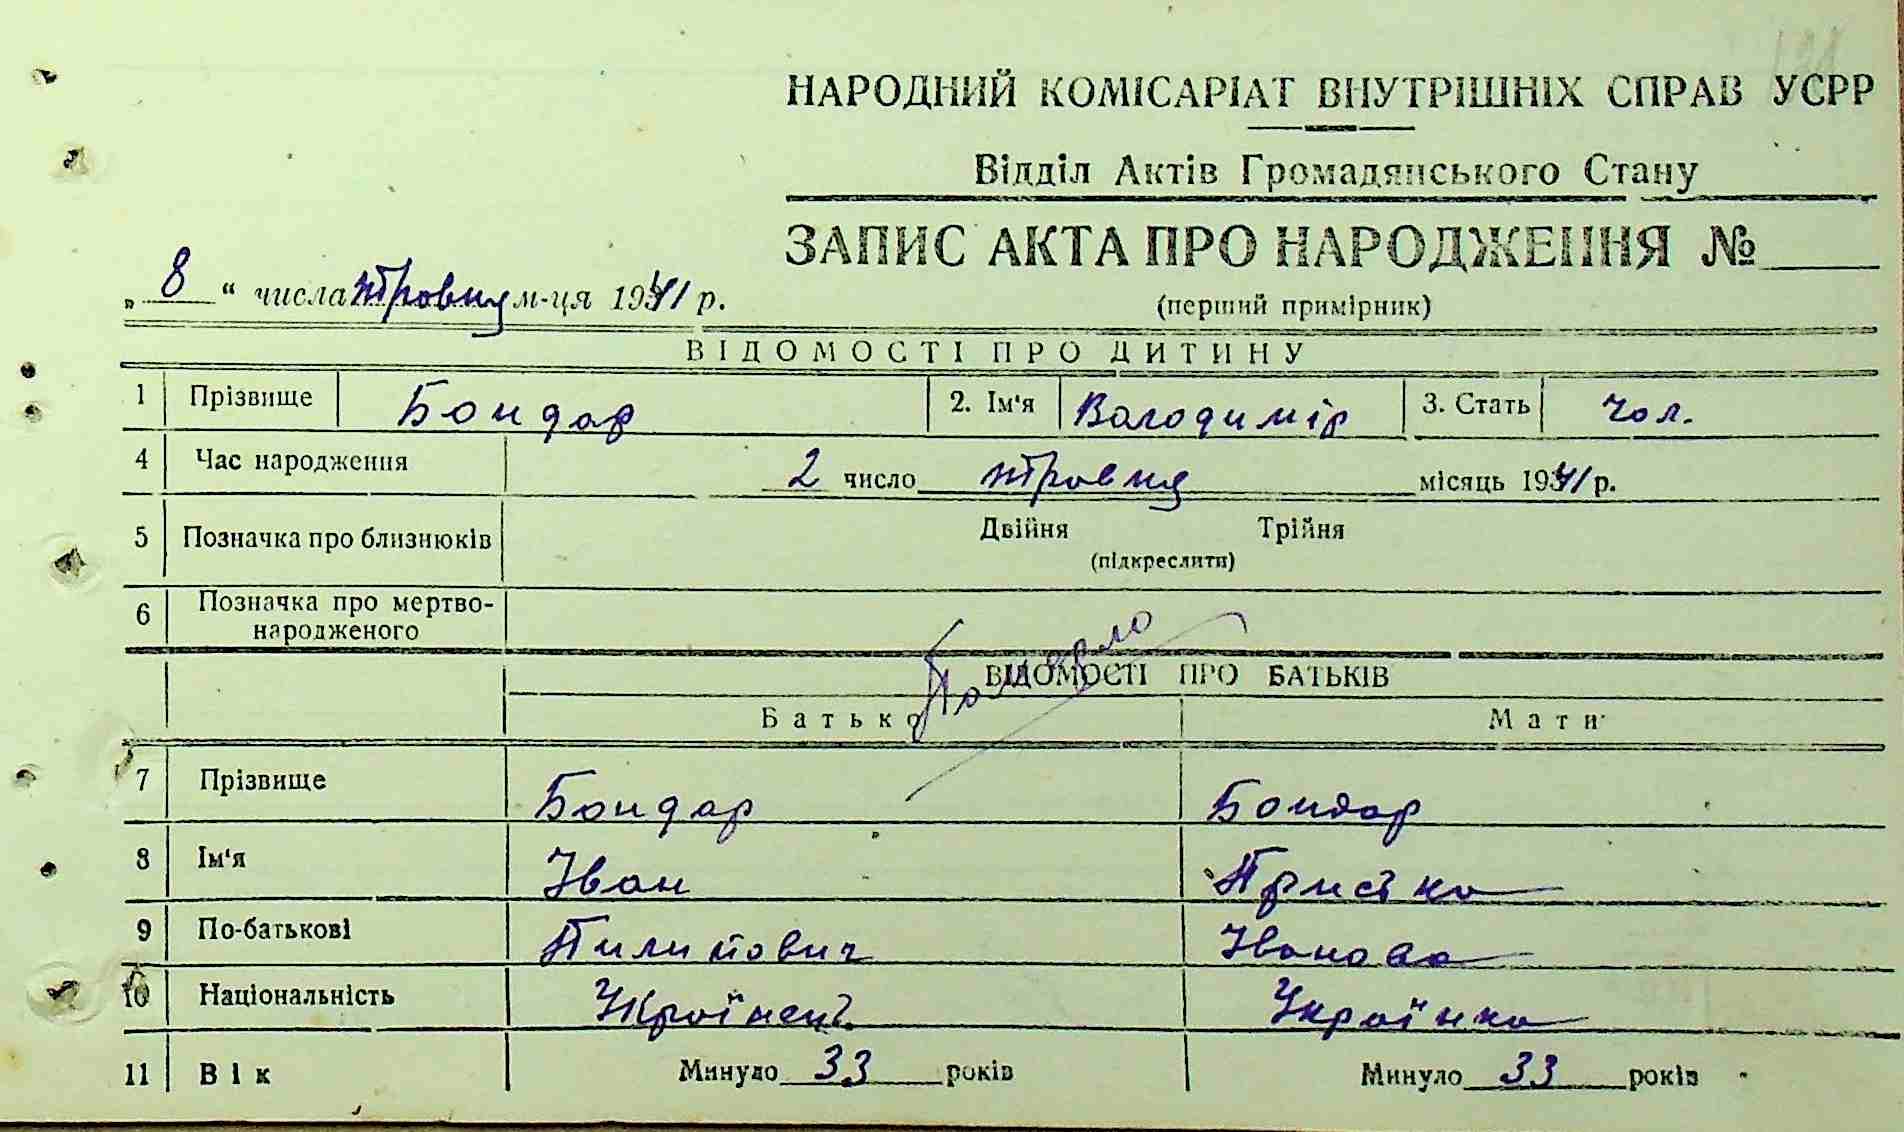 НАРОДНИЙ КОМІСАРІАТ ВНУТРІШНІХ СПРАВ УСРР
Відділ Актів Громадянського Стану
ЗАПИС АКТА ПРО НАРОДЖЕННЯ №
„ 8 “ числа травня м-ця 1941 р.
(перший примірник)
ВІДОМОСТІ ПРО ДИТИНУ
1 Прізвище Бондар 2. Ім'я Володимір 3. Стать чол.
4 Час народження 2 число травня місяць 1941 р.
5 Позначка про близнюків Двійня Трійня
(підкреслити)
6 Позначка про мертво-
народженого
Померло
ВІДОМОСТІ ПРО БАТЬКІВ
Батько Мати
7 Прізвище Бондар Бондар
8 Ім'я Іван Пристка
9 По-батькові Пилипович Іванова
10 Національність Українець Українка
11 Вік Минуло 33 років Минуло 33 років